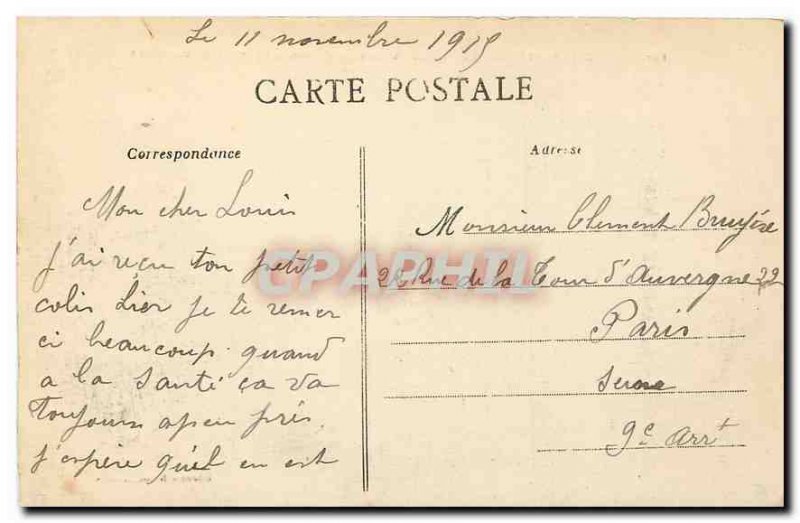 Le 11 novembre 1915
CARTE POSTALE
Correspondance
Mon cher Louis
J'ai reçu ton petit
colis hier je te remer
ci beaucoup. quand
a la santé ça va
toujours apeu près.
j'espère qu'el en est
Adresse
Monsieur Clement Bruyère
Rue de la Tour d'Auvergne 22
Paris
Seine
9e Arrt
CPAPHIL